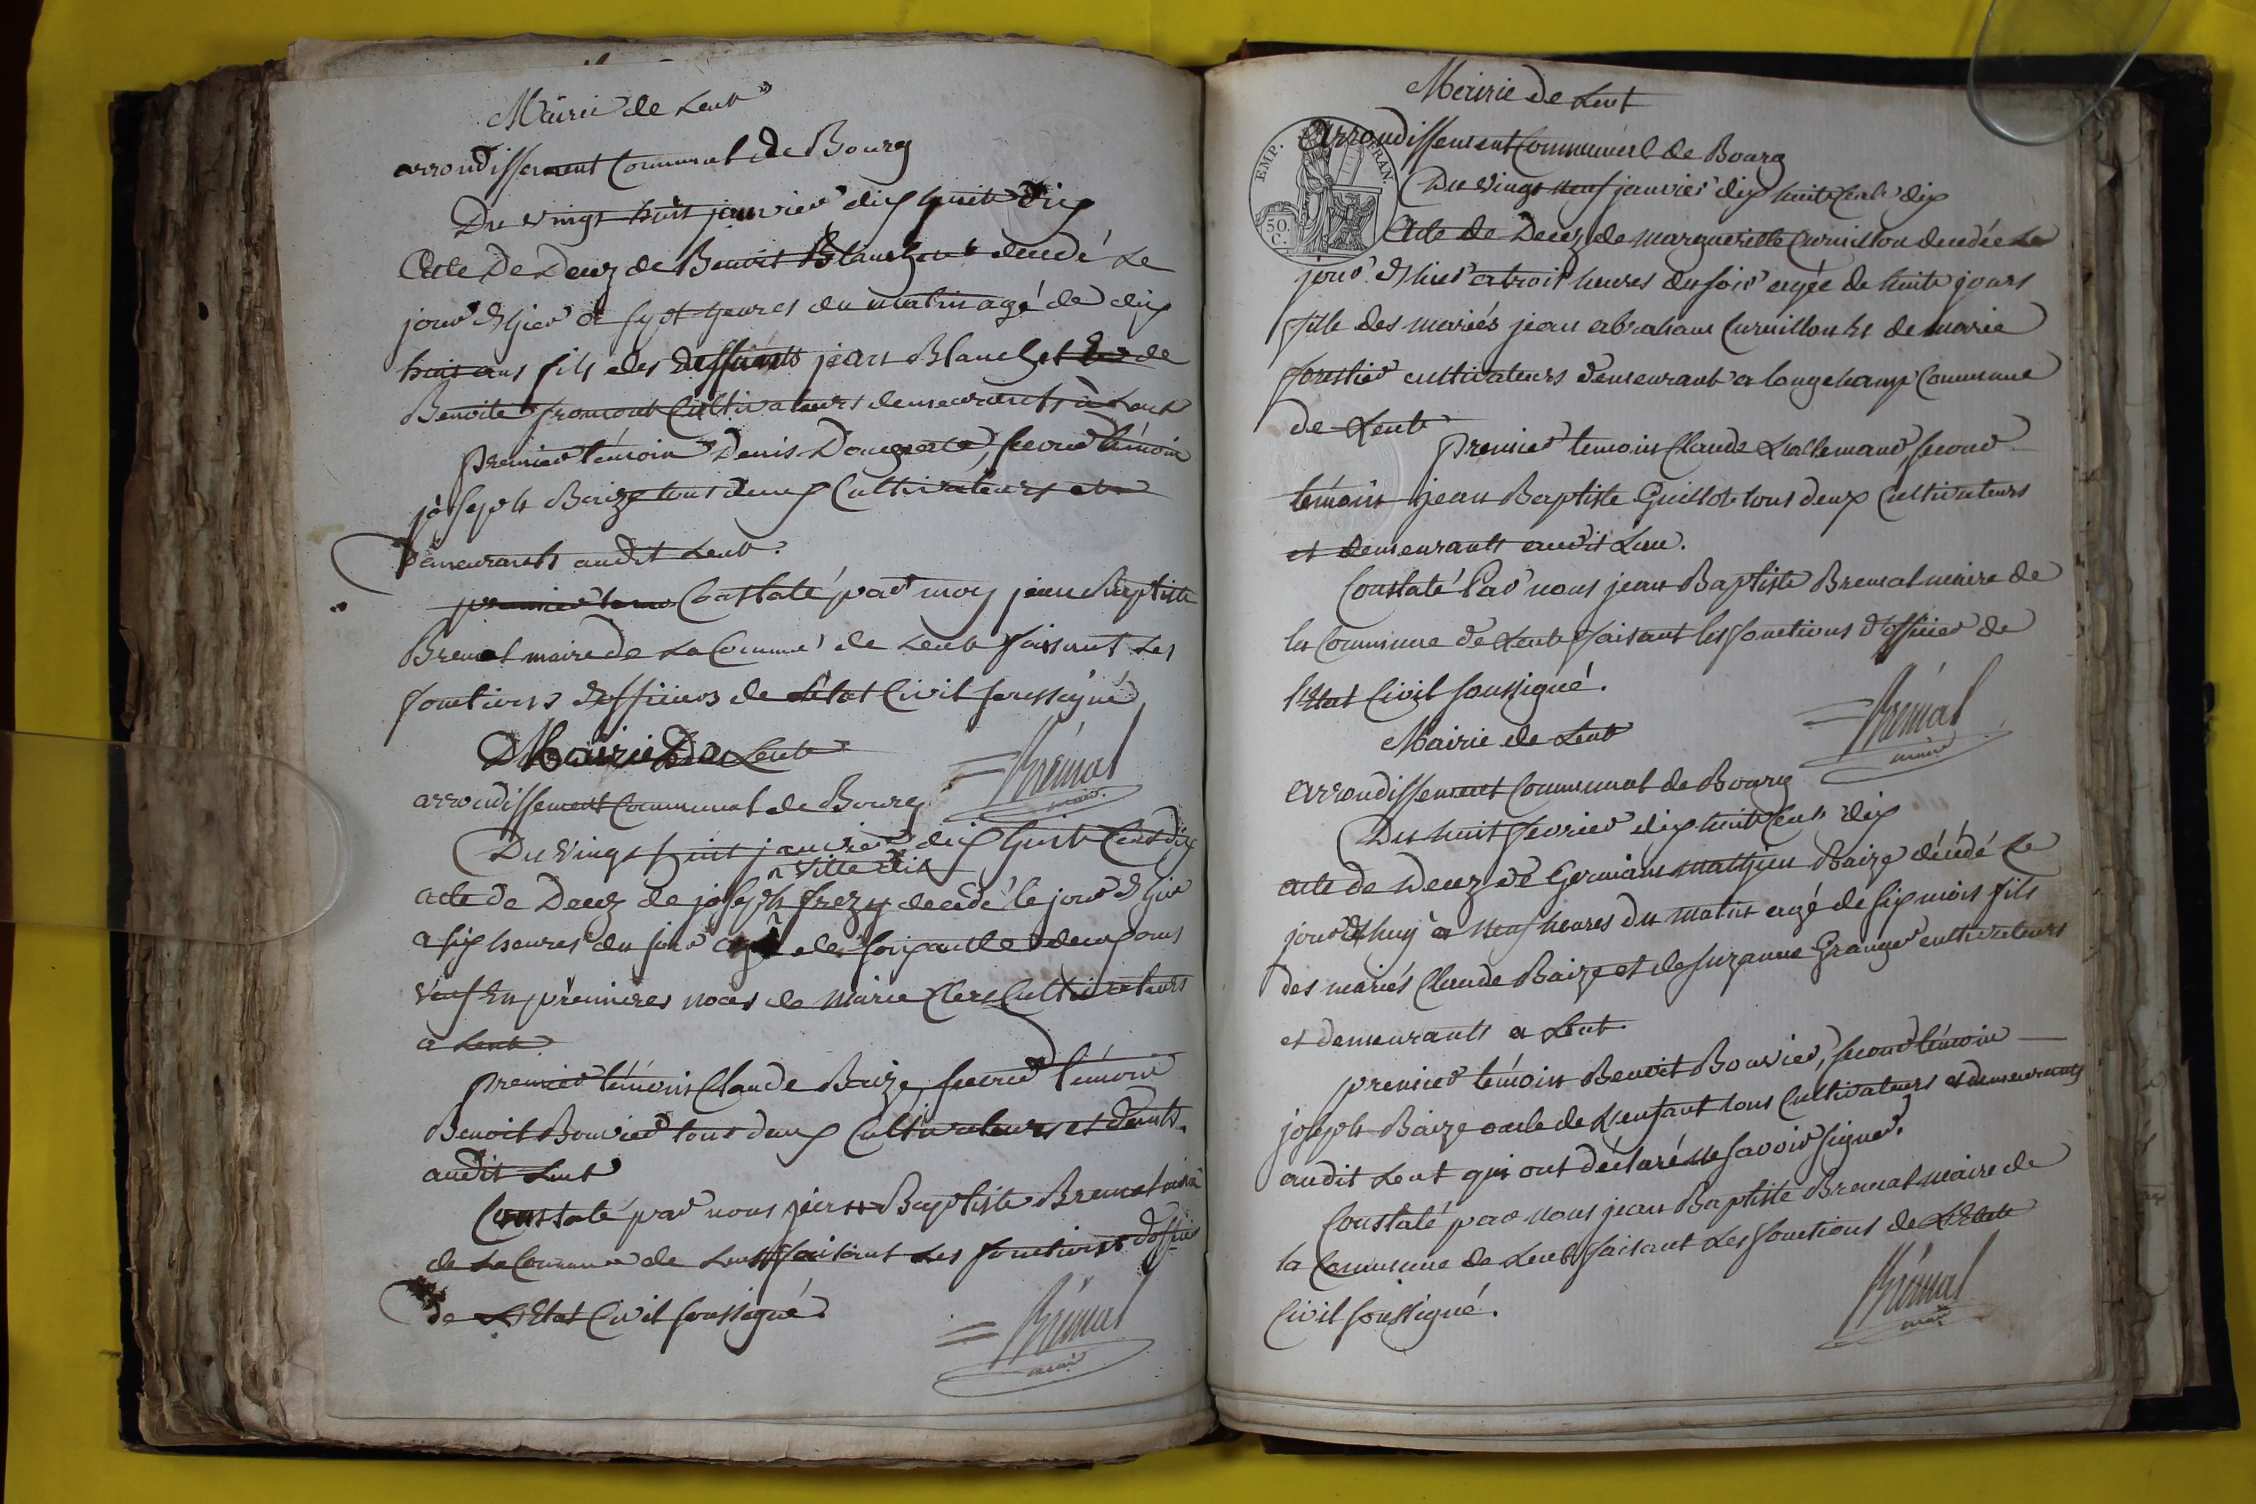 Mairie de Lent
arrondissement Communal de Bourg
Du vingt huit janvier dix huit dix
Acte De Decez de Benoit Blanchet decedé Le
jour d'hier a sept heures du matin agé de dix
huit ans fils des deffunts jean Blanchet et de
Benoite fromont Cultivateurs demeurants à Lent
premier témoin Denis second témoin
joseph Baize tous deux Cultivateurs et
demeurants audit Lent.
premier temo Constaté par moy jean Baptiste
Bremal maire de La Comme de Lent faisant Les
fonctions d'officiers de L'état Civil soussigné
Brémal
maire
Mairie De Lent
arrondissement Communal de Bourg
Du vingt huit janvier dix huit Cent dix
ville dit
acte de Decez de joseph frezy decedé le jour d'hier
a six heures du soir agé de soixante deux ans
veuf En premieres noces de Marie Clerc Cultivateurs
a Lent
premier témoin Claude Baize, second témoin
Benoit Bouvier tous deux Cultivateurs et demts.
audit Lent
Constaté par nous jean Baptiste Bremal maire
de La Commune de Lent faisant Les fonctions d'officier
de L'Etat Civil soussigné
Brémal
maire
Mairie de Lent
EMP. FRAN.
50.
C.
Arrondissement Communal de Bourg
Du vingt neuf janvier dix huit Cent dix
Acte de Decez de marguerite Curnillon decedée Le
jour d'hier a trois heures du soir agée de huit jours
fille des mariés jean abraham Curnillon et de marie
forestier cultivateurs demeurant a longchamp Commune
de Lent
premier temoin Claude Lallemand, second
témoin jean Baptiste Guillot tous deux Cultivateurs
et demeurants audit Lieu.
Constaté Par nous jean Baptiste Bremal maire de
la Commune de Lent faisant les fonctions d'officier de
l'Etat Civil soussigné.
Brémal
maire
Mairie de Lent
arrondissement Communal de Bourg
Du huit fevrier dix huit Cent dix
acte de Decez de Germain Mathieu Baize décédé Le
jour d'huy a neuf heures du matin agé de six mois fils
des mariés Claude Baize et de suzanne Granger cultivateurs
et demeurants a Lent
premier témoin Benoit Bouvier, second témoin
joseph Baize oncle de L'enfant tous Cultivateurs et demeurants
audit Lent qui ont déclaré ne savoir signer.
Constaté par nous jean Baptiste Bremal maire de
la Commune de Lent faisant Les fonctions de L'Etat
Civil soussigné.
Brémal
maire